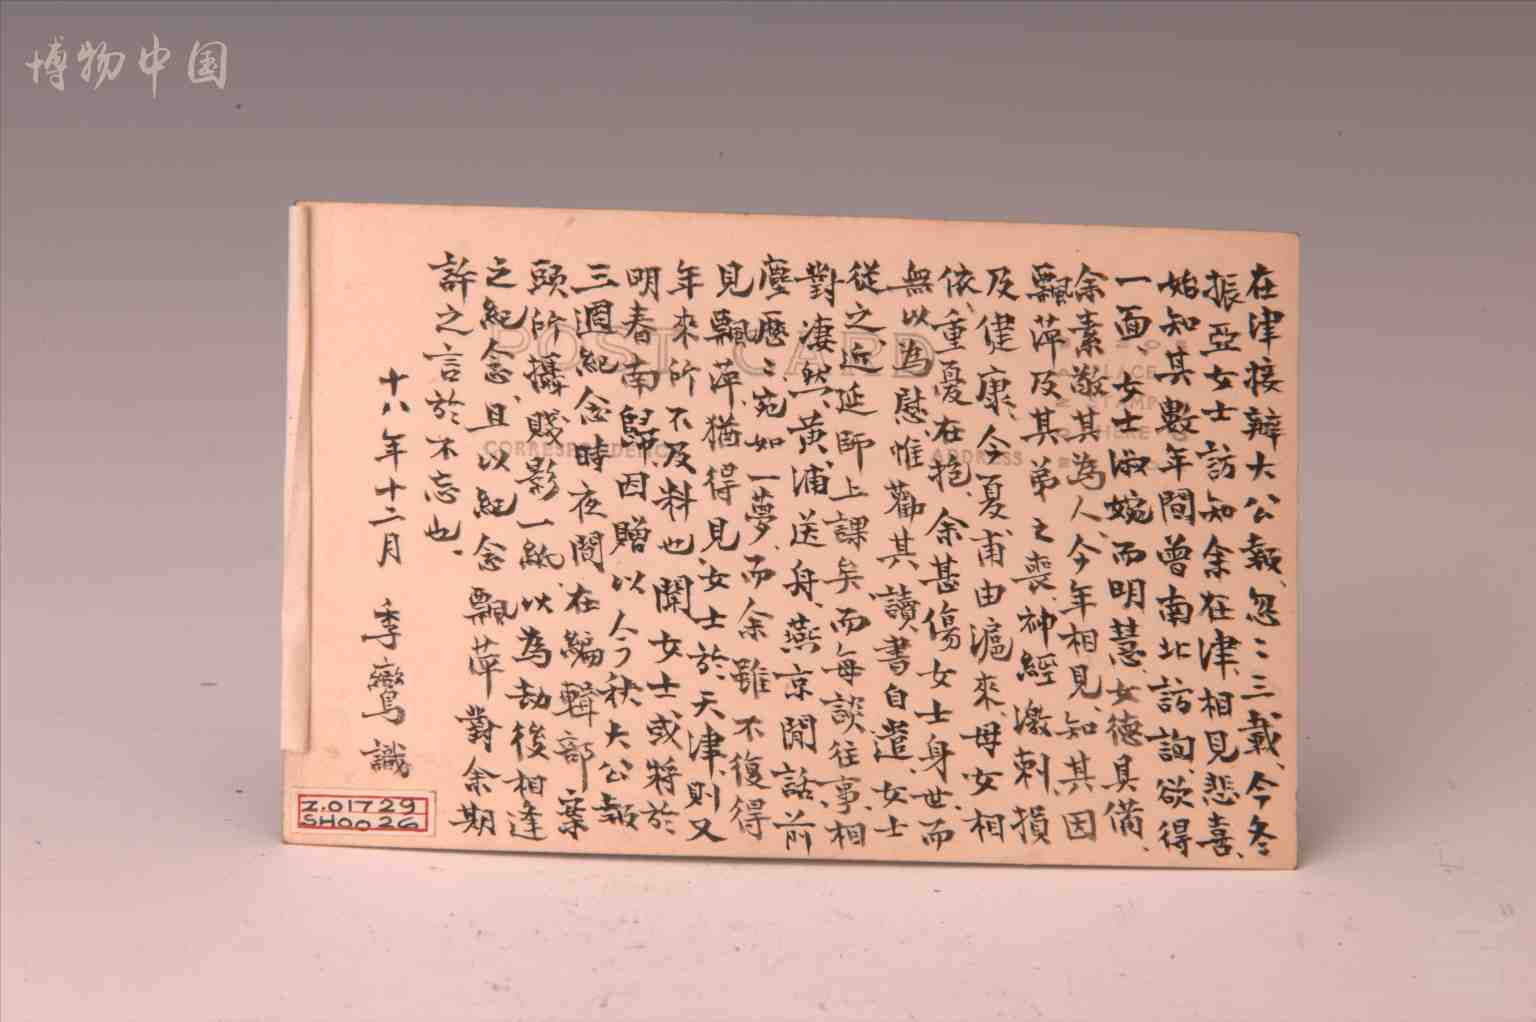 博物中国
在津接辦大公報、忽二三載、今冬
振亞女士訪知余在津、相見悲喜、
始知其數年間曾南北訪詢、欲得
一面、女士淑婉而明慧、女德具備、
余素敬其為人、今年相見、知其因
飄萍及其弟之喪、神經激刺、損
及健康、今夏甫由滬來、母女相
依、重憂在抱、余甚傷女士身世、而
無以為慰、惟勸其讀書自遣、女士
從之、近延師上課矣、而每談往事、相
對淒然、黃浦送舟、燕京閒話、前
塵歷二、宛如一夢、而余雖不復得
見飄萍、猶得見女士於天津、則又
年來所不及料也、聞女士或將於
明春南歸、因贈以今秋大公報
三週紀念時夜間在編輯部案
頭所攝賤影一紙、以為劫後相逢
之紀念、且以紀念飄萍對余期
許之言於不忘也、
十八年十二月 季鸞識
POST CARD
PLACE
STAMP
HERE
CORRESPONDENCE
ADDRESS
Z.01729
SH0026